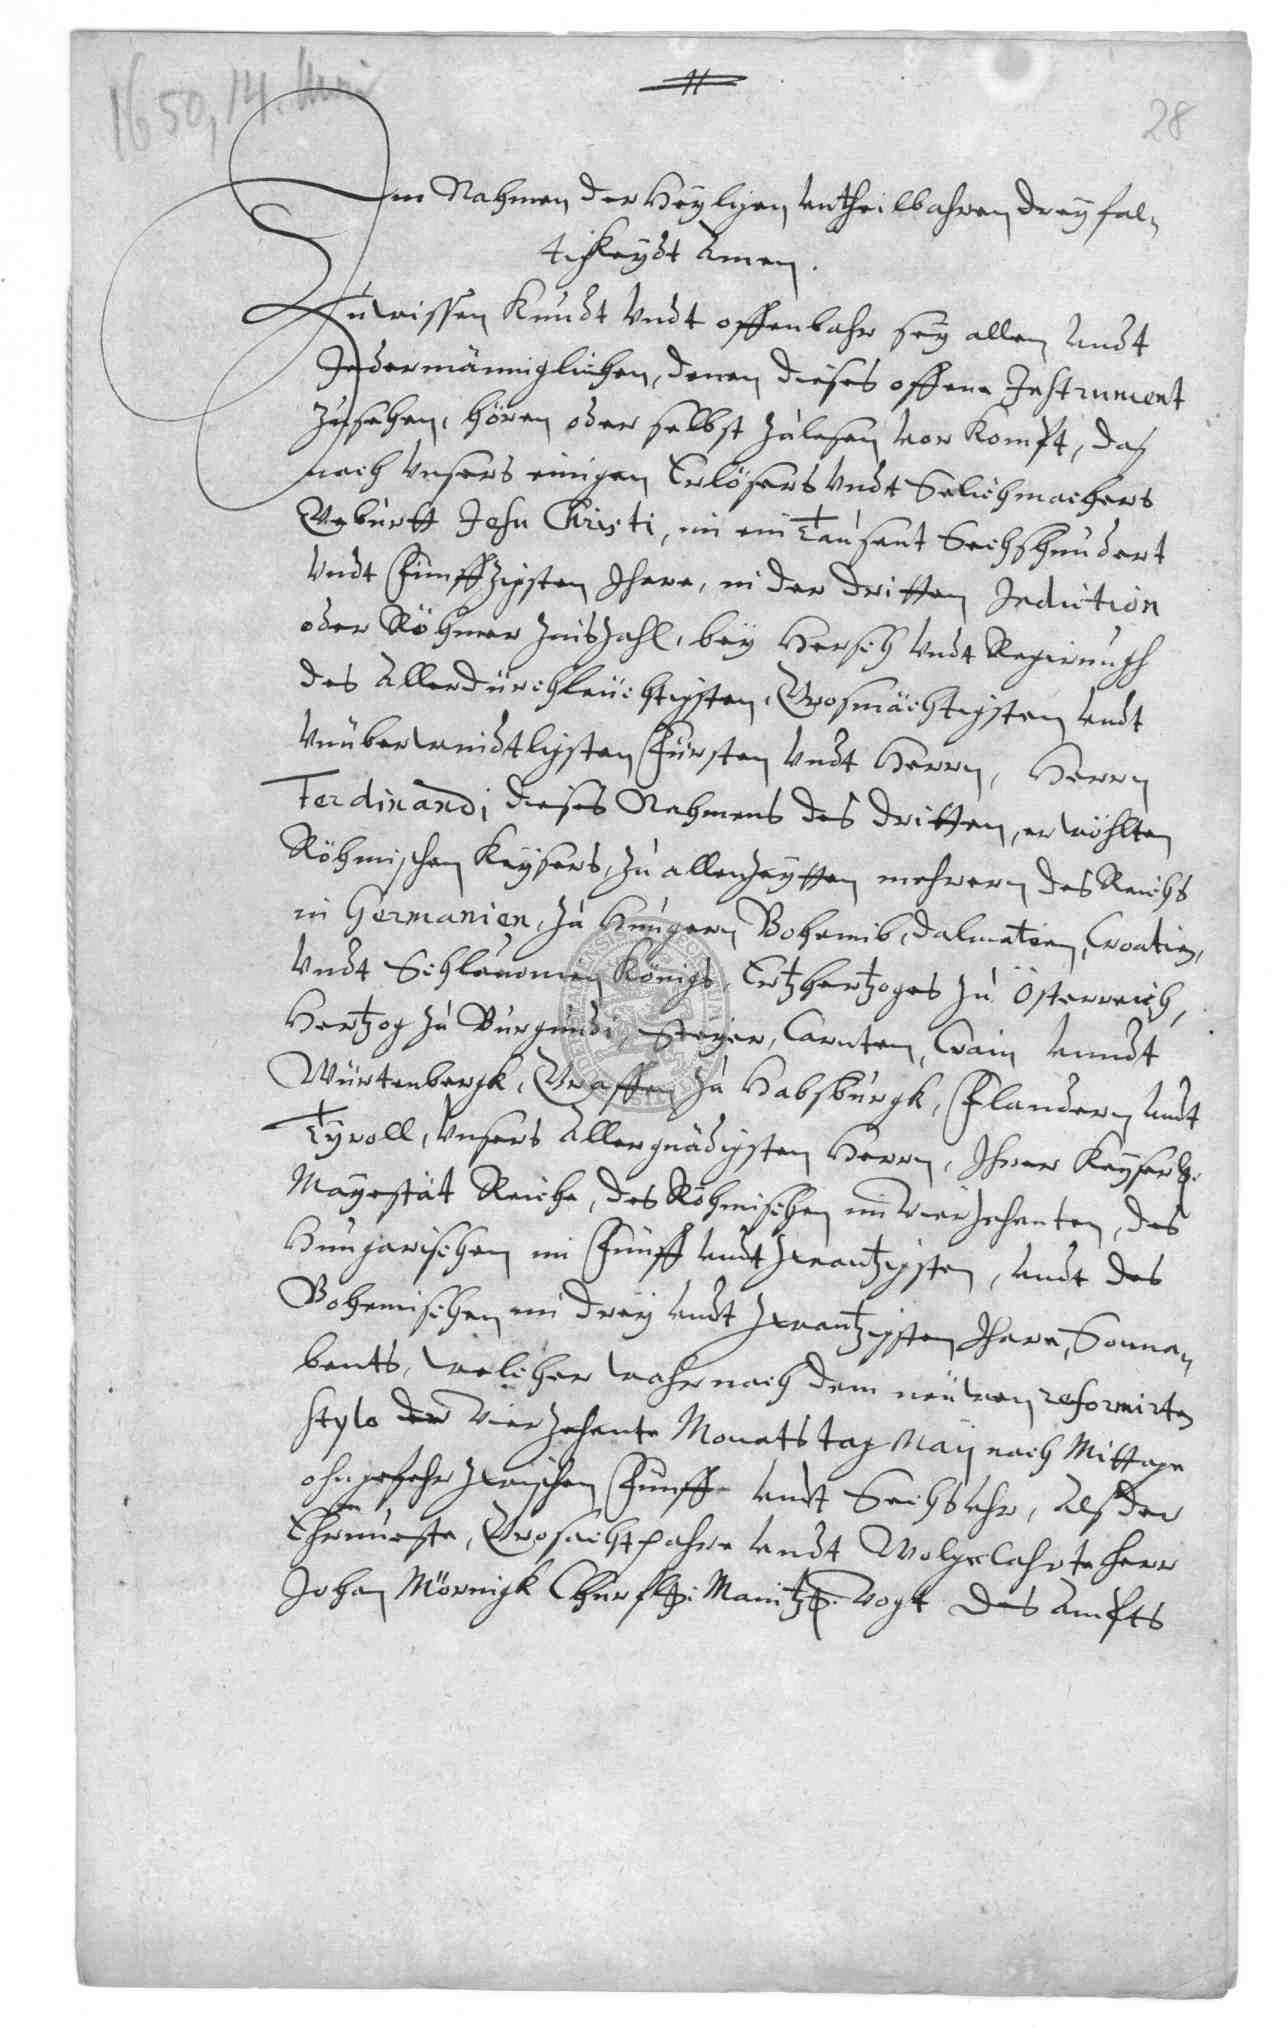 1650, 14. Mai
11
28
Im Nahmen der Heyligen Untheilbahren dreyfal-
tikeydt Amen.
Zu wissen Kundt Undt offenbahr sey allen Undt
Jedermänniglichen, denen dieses offene Instrument
Zusehen, hören oder selbst Zulesen vor Kompt, das
nach Unsers einigen Erlösers Undt Selichmachers
Geburtt Jesu Christi, im ein Tausent Sechshundert
Undt Fünffzigsten Jhare, in der dritten Indiction
oder Röhmer Zinszahl, bey Hersch Undt Regirungh
des Allerdurchleüchtigsten, Grosmächtigsten Undt
Unüberwindtligsten Fürsten Undt Herrn, Herrn
Ferdinandi dieses Nahmens des dritten, erwöhlten
Röhmischen Keysers, Zu allen Zeytten mehrern des Reichs
in Germanien, Zu Hungern, Bohemib, Dalmatien, Croatien,
Undt Schlauonien Königs, Ertzhertzoges Zu Österreich,
Hertzog Zu Burgundi, Steyer, Carnten, Crain Unndt
Würtenbergk, Graffen Zu Habsburgk, Flandern Undt
Tyroll, Unsers Allergnädigsten Herrn, Jhrer Keyserl.
Mayestät Reiche, des Röhmischen im Vierzehenten, des
Hungarischen im Fünff Undt Zwantzigsten, Undt des
Bohemischen im drey Undt Zwantzigsten Jhare, Sonna-
bents, welcher wahr nach dem neüwen reformirten
stylo der Vierzehente Monatstag Maij nach Mittage
ohngefehr Zwischen Fünff Undt Sechs Uhr, Als der
Ehrnueste, Grosachtpahre Undt Wolgelahrte Herr
Johan Mörnigk Churfl. Maintz. Vogt des Ampts